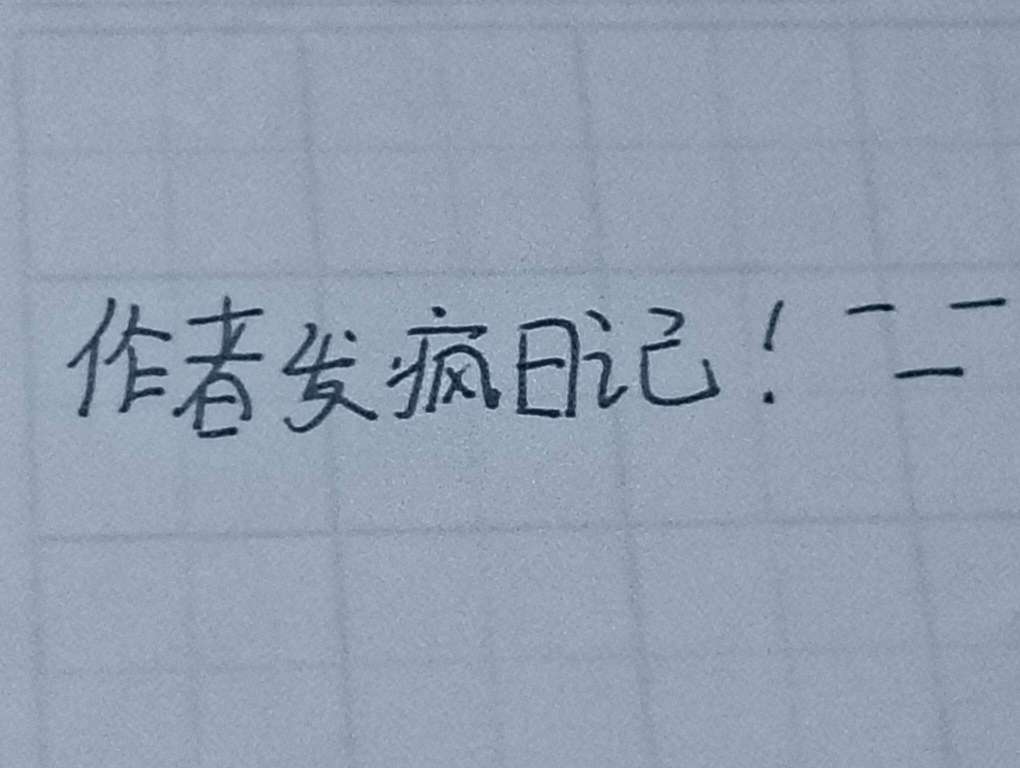 作者发疯日记！